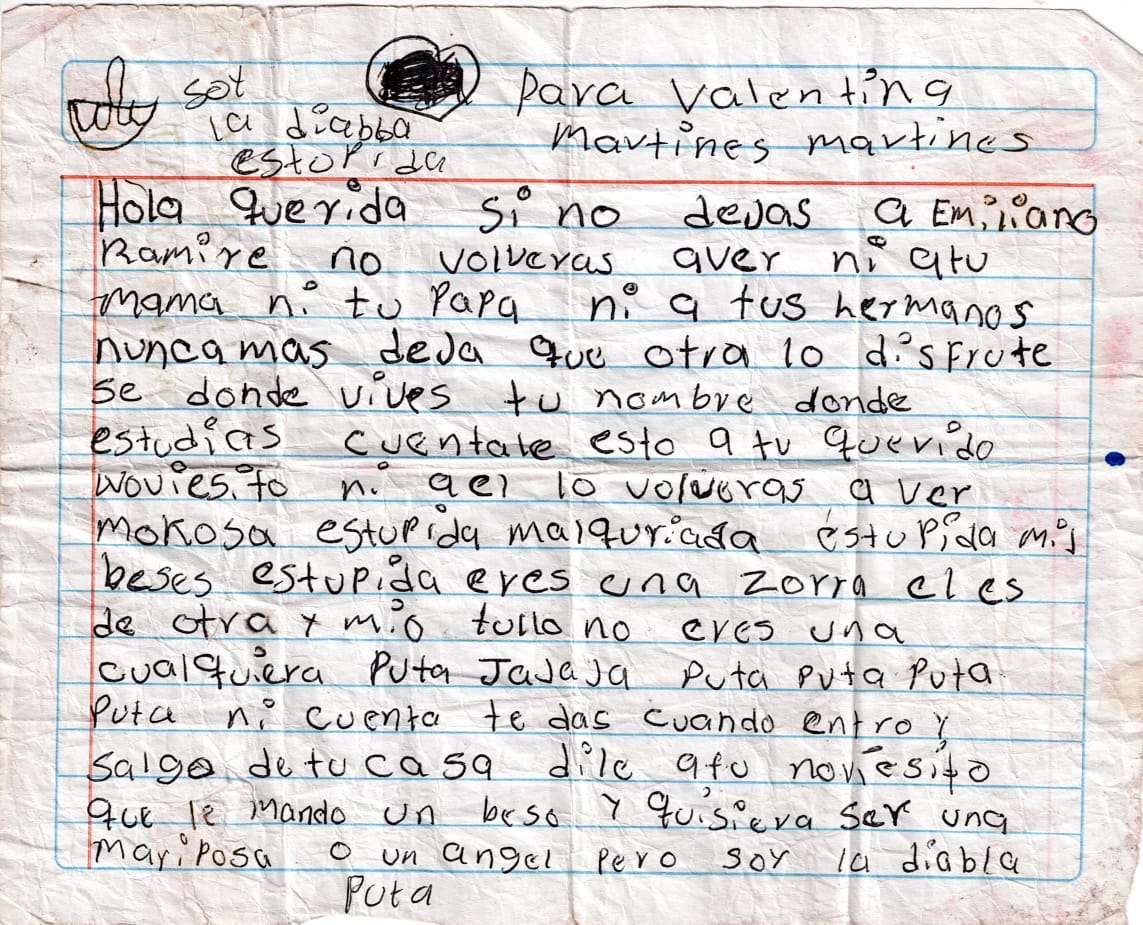 sot
la diabba
estopida
para valentina
martines martines
Hola querida si no dejas a Emiliano
Ramire no volveras aver ni atu
mama ni tu papa ni a tus hermanos
nunca mas deja que otra lo disfrute
se donde vives tu nombre donde
estudias cuentale esto a tu querido
noviesito ni ael lo volveras a ver
mokosa estupida malquriada estupida mil
beses estupida eres una zorra el es
de otra y mio tullo no eres una
cualquiera puta JaJaJa puta puta puta
puta ni cuenta te das cuando entro y
salgo de tu casa dile atu noviesito
que le mando un beso y quisiera ser una
mariposa o un angel pero soy la diabla
puta